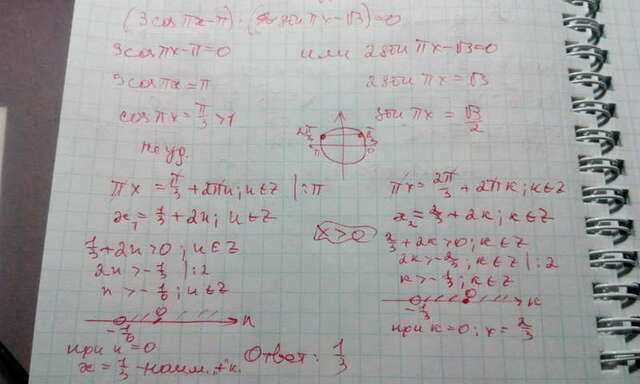 (3cos πx-π)·(2sin πx-√3)=0
3cos πx-π=0 или 2sin πx-√3=0
3cos πx=π 2sin πx=√3
cos πx=π/3>1 sin πx=√3/2
не уд.
2π/3 π/3
π 0
πx=π/3+2πn; n∈Z |:π πx=2π/3+2πk; k∈Z
x₁=1/3+2n; n∈Z x>0 x₂=2/3+2k; k∈Z
1/3+2n>0; n∈Z 2/3+2k>0; k∈Z
2n>-1/3 |:2 2k>-2/3; k∈Z |:2
n>-1/6; n∈Z k>-1/3; k∈Z
-1/6 0 n -1/3 0 k
при n=0 при k=0: x=2/3
x=1/3 -наим. +к. Ответ: 1/3